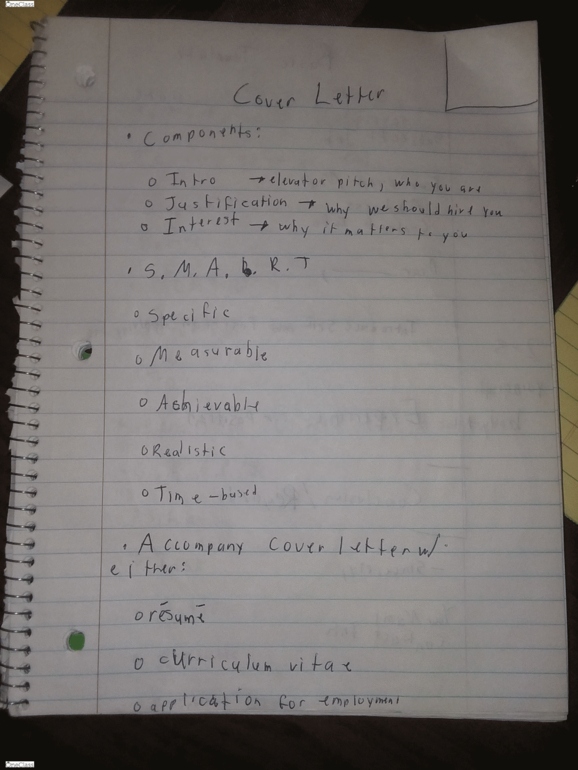 OneClass
Cover Letter
• Components:
o Intro → elevator pitch, who you are
o Justification → why we should hire you
o Interest → why it matters to you
• S. M. A. R. T
o Specific
o Measurable
o Achievable
o Realistic
o Time-based
• Accompany cover letter w/
either:
o résumé
o curriculum vitae
o application for employment
OneClass